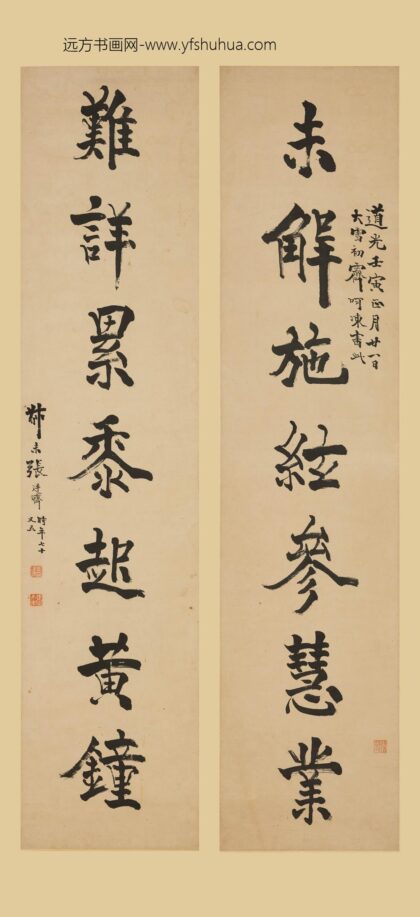 远方书画网-www.yfshuhua.com
未解施絃參慧業
道光壬寅正月廿八日
大雪初霽呵凍書此
難詳累黍起黃鐘
叔未張廷濟時年七十
又五